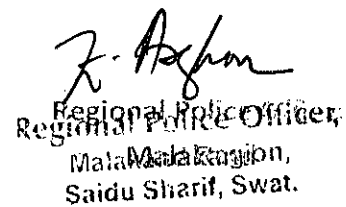 Regional Police Officer,
Malakand Region,
Saidu Sharif, Swat.